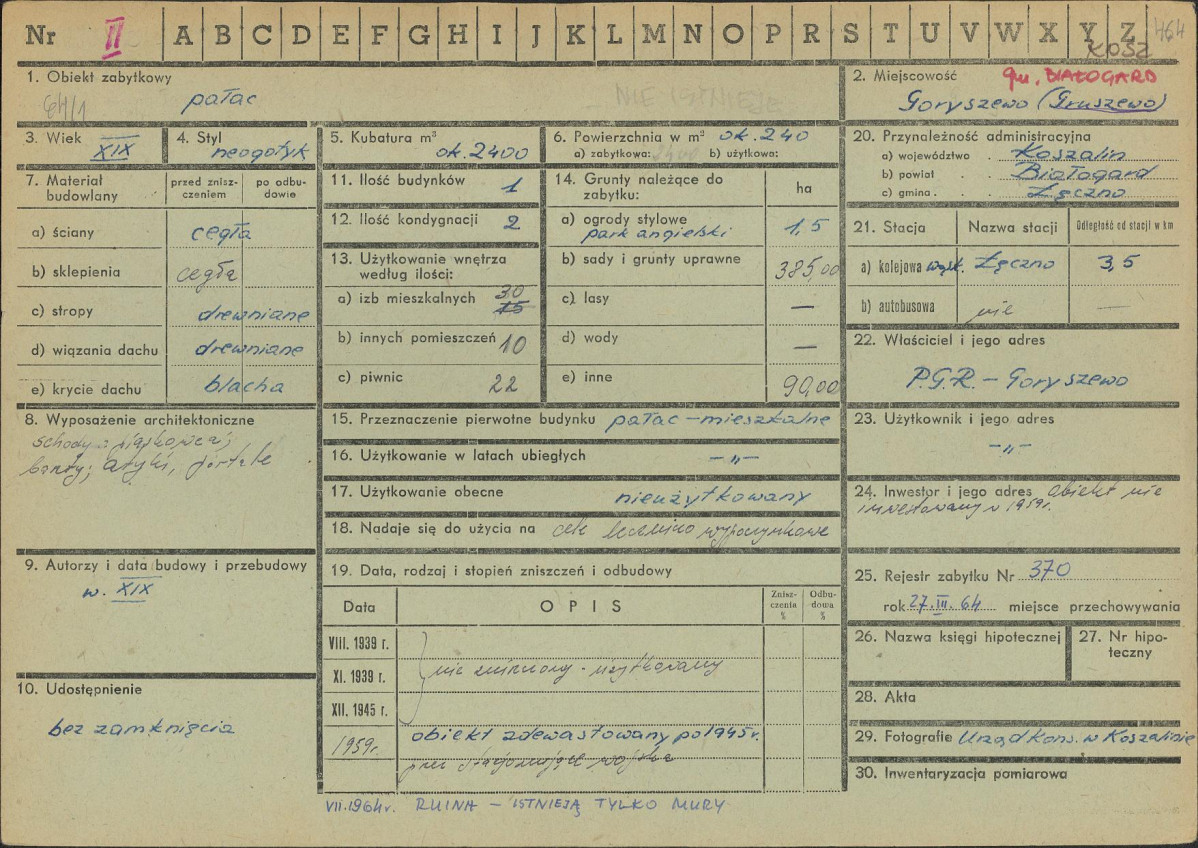 Nr II A B C D E F G H I J K L M N O P R S T U V W X Y Z 464
KOSZ
1. Obiekt zabytkowy
64/1
pałac
NIE ISTNIEJE
2. Miejscowość gm. BIAŁOGARD
Goryszewo (Gruszewo)
3. Wiek XIX
4. Styl neogotyk
5. Kubatura m³ ok. 2400
6. Powierzchnia w m² ok. 240
a) zabytkowa: b) użytkowa:
20. Przynależność administracyjna
a) województwo . Koszalin
b) powiat . . Białogard
c) gmina . . Łęczno
7. Materiał budowlany
przed zniszczeniem
po odbudowie
a) ściany cegła
b) sklepienia cegła
c) stropy drewniane
d) wiązania dachu drewniane
e) krycie dachu blacha
11. Ilość budynków 1
12. Ilość kondygnacji 2
13. Użytkowanie wnętrza
według ilości:
a) izb mieszkalnych 30 15
b) innych pomieszczeń 10
c) piwnic 22
14. Grunty należące do
zabytku: ha
a) ogrody stylowe
park angielski 1,5
b) sady i grunty uprawne 385,00
c) lasy —
d) wody —
e) inne 90,00
21. Stacja Nazwa stacji Odległość od stacji w km
a) kolejowa wąsk. Łęczno 3,5
b) autobusowa nie —
22. Właściciel i jego adres
P.G.R. – Goryszewo
8. Wyposażenie architektoniczne
schody
attyki, portale
15. Przeznaczenie pierwotne budynku pałac – mieszkalne
16. Użytkowanie w latach ubiegłych – „ –
17. Użytkowanie obecne nieużytkowany
18. Nadaje się do użycia na cele leczniczo wypoczynkowe
23. Użytkownik i jego adres
– „ –
24. Inwestor i jego adres obiekt nie
inwestowany w 1959r.
9. Autorzy i data budowy i przebudowy
w. XIX
19. Data, rodzaj i stopień zniszczeń i odbudowy
Data OPIS Zniszczenia % Odbudowa %
VIII. 1939 r.
XI. 1939 r. nie zniszczony - użytkowany
XII. 1945 r.
1959r. obiekt zdewastowany po 1945r.
przez stacjonujące wojska
VII.1964r. RUINA – ISTNIEJĄ TYLKO MURY
25. Rejestr zabytku Nr 370
rok 27.III.64 miejsce przechowywania
26. Nazwa księgi hipotecznej
27. Nr hipoteczny
10. Udostępnienie
bez zamknięcia
28. Akta
29. Fotografie Urząd Kons. w Koszalinie
30. Inwentaryzacja pomiarowa